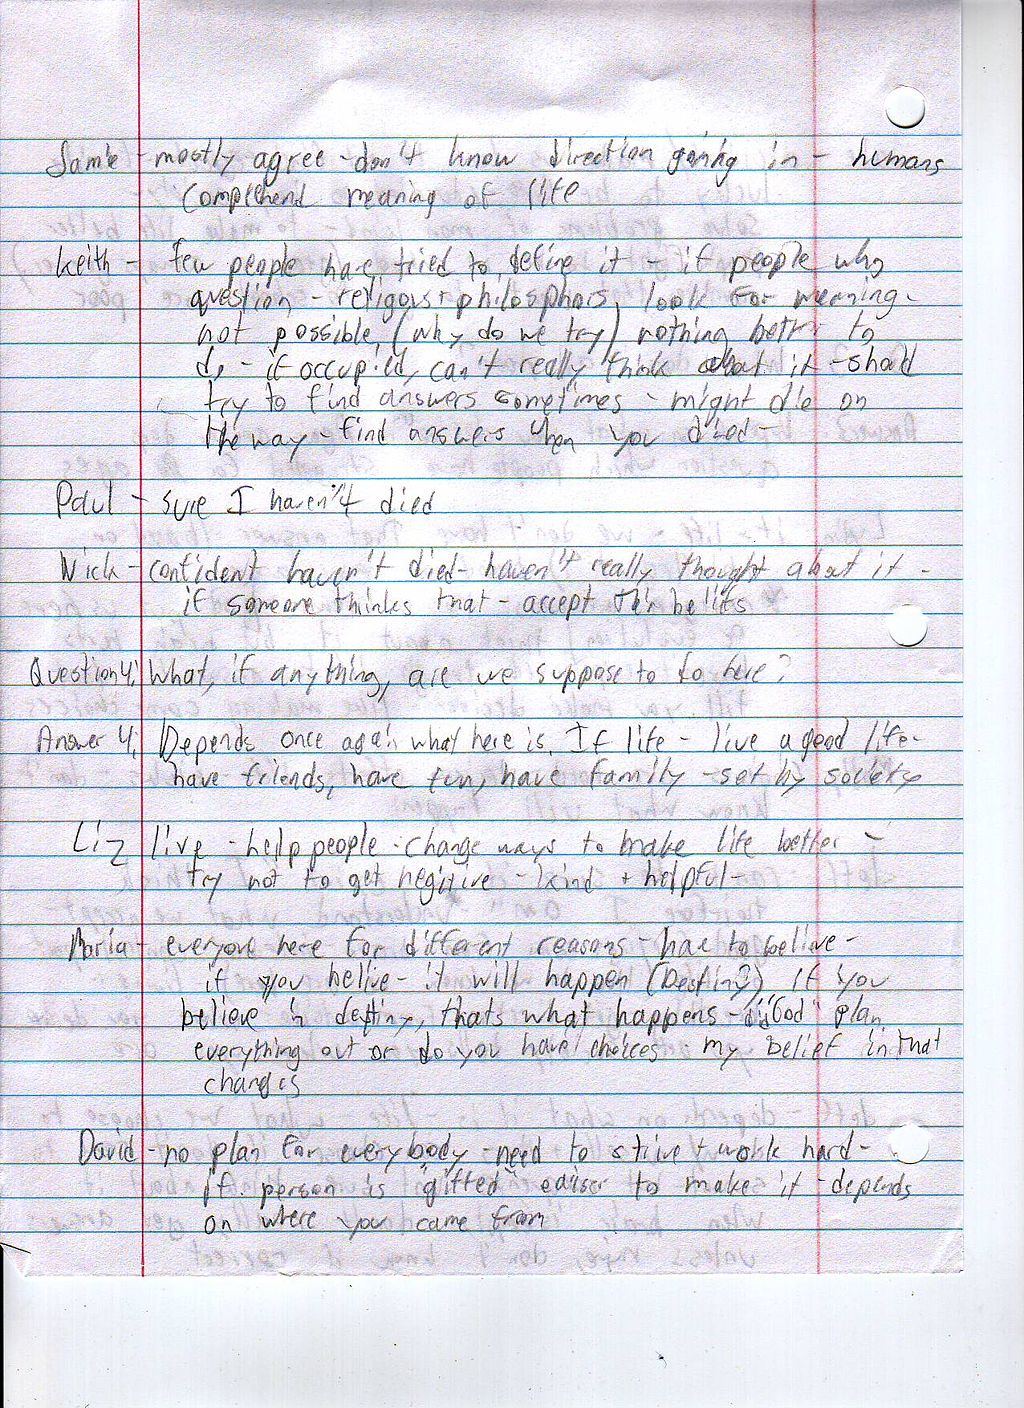 Jamie - mostly agree - don't know direction going in - humans
comprehend meaning of life
Keith - few people have tried to define it - if people who
question - religous + philosphors, look for meaning -
not possible, (why do we try) nothing better to
do - if occupied, can't really think about it - should
try to find answers sometimes - might die on
the way - find answers when you died -
Paul - sure I haven't died
Nick - confident haven't died - haven't really thought about it -
if someone thinks that - accept their belifs
Question 4: What, if anything, are we suppose to do here?
Answer 4: Depends once again what here is. If life - live a good life -
have friends, have fun, have family - set by society
Liz live - help people - change ways to make life better -
try not to get negitive - kind + helpful -
Maria - everyone here for different reasons - have to belive -
if you belive - it will happen (Destiny?) If you
believe in destiny, thats what happens - "God" plan
everything out or do you have choices my belief in that
changes
David - no plan for everybody - need to strive + work hard -
if person is "gifted" eaiser to make it - depends
on where you came from